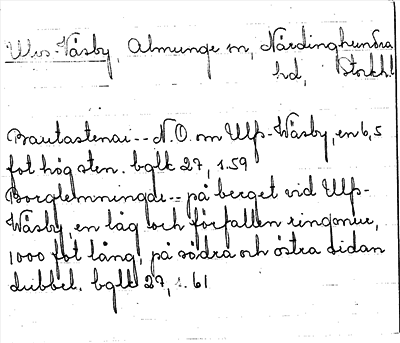 Ulvs-Väsby, Almunge sn, Närdinghundra
hd, Stockh.l
Bautastenar -- N.O. om Ulfs-Wäsby, en 6,5
fot hög sten. bglk 27, s.59
Borglemningar -- på berget vid Ulfs-
Wäsby en låg och förfallen ringmur,
1000 fot lång, på södra och östra sidan
dubbel. bglk 27, s.61